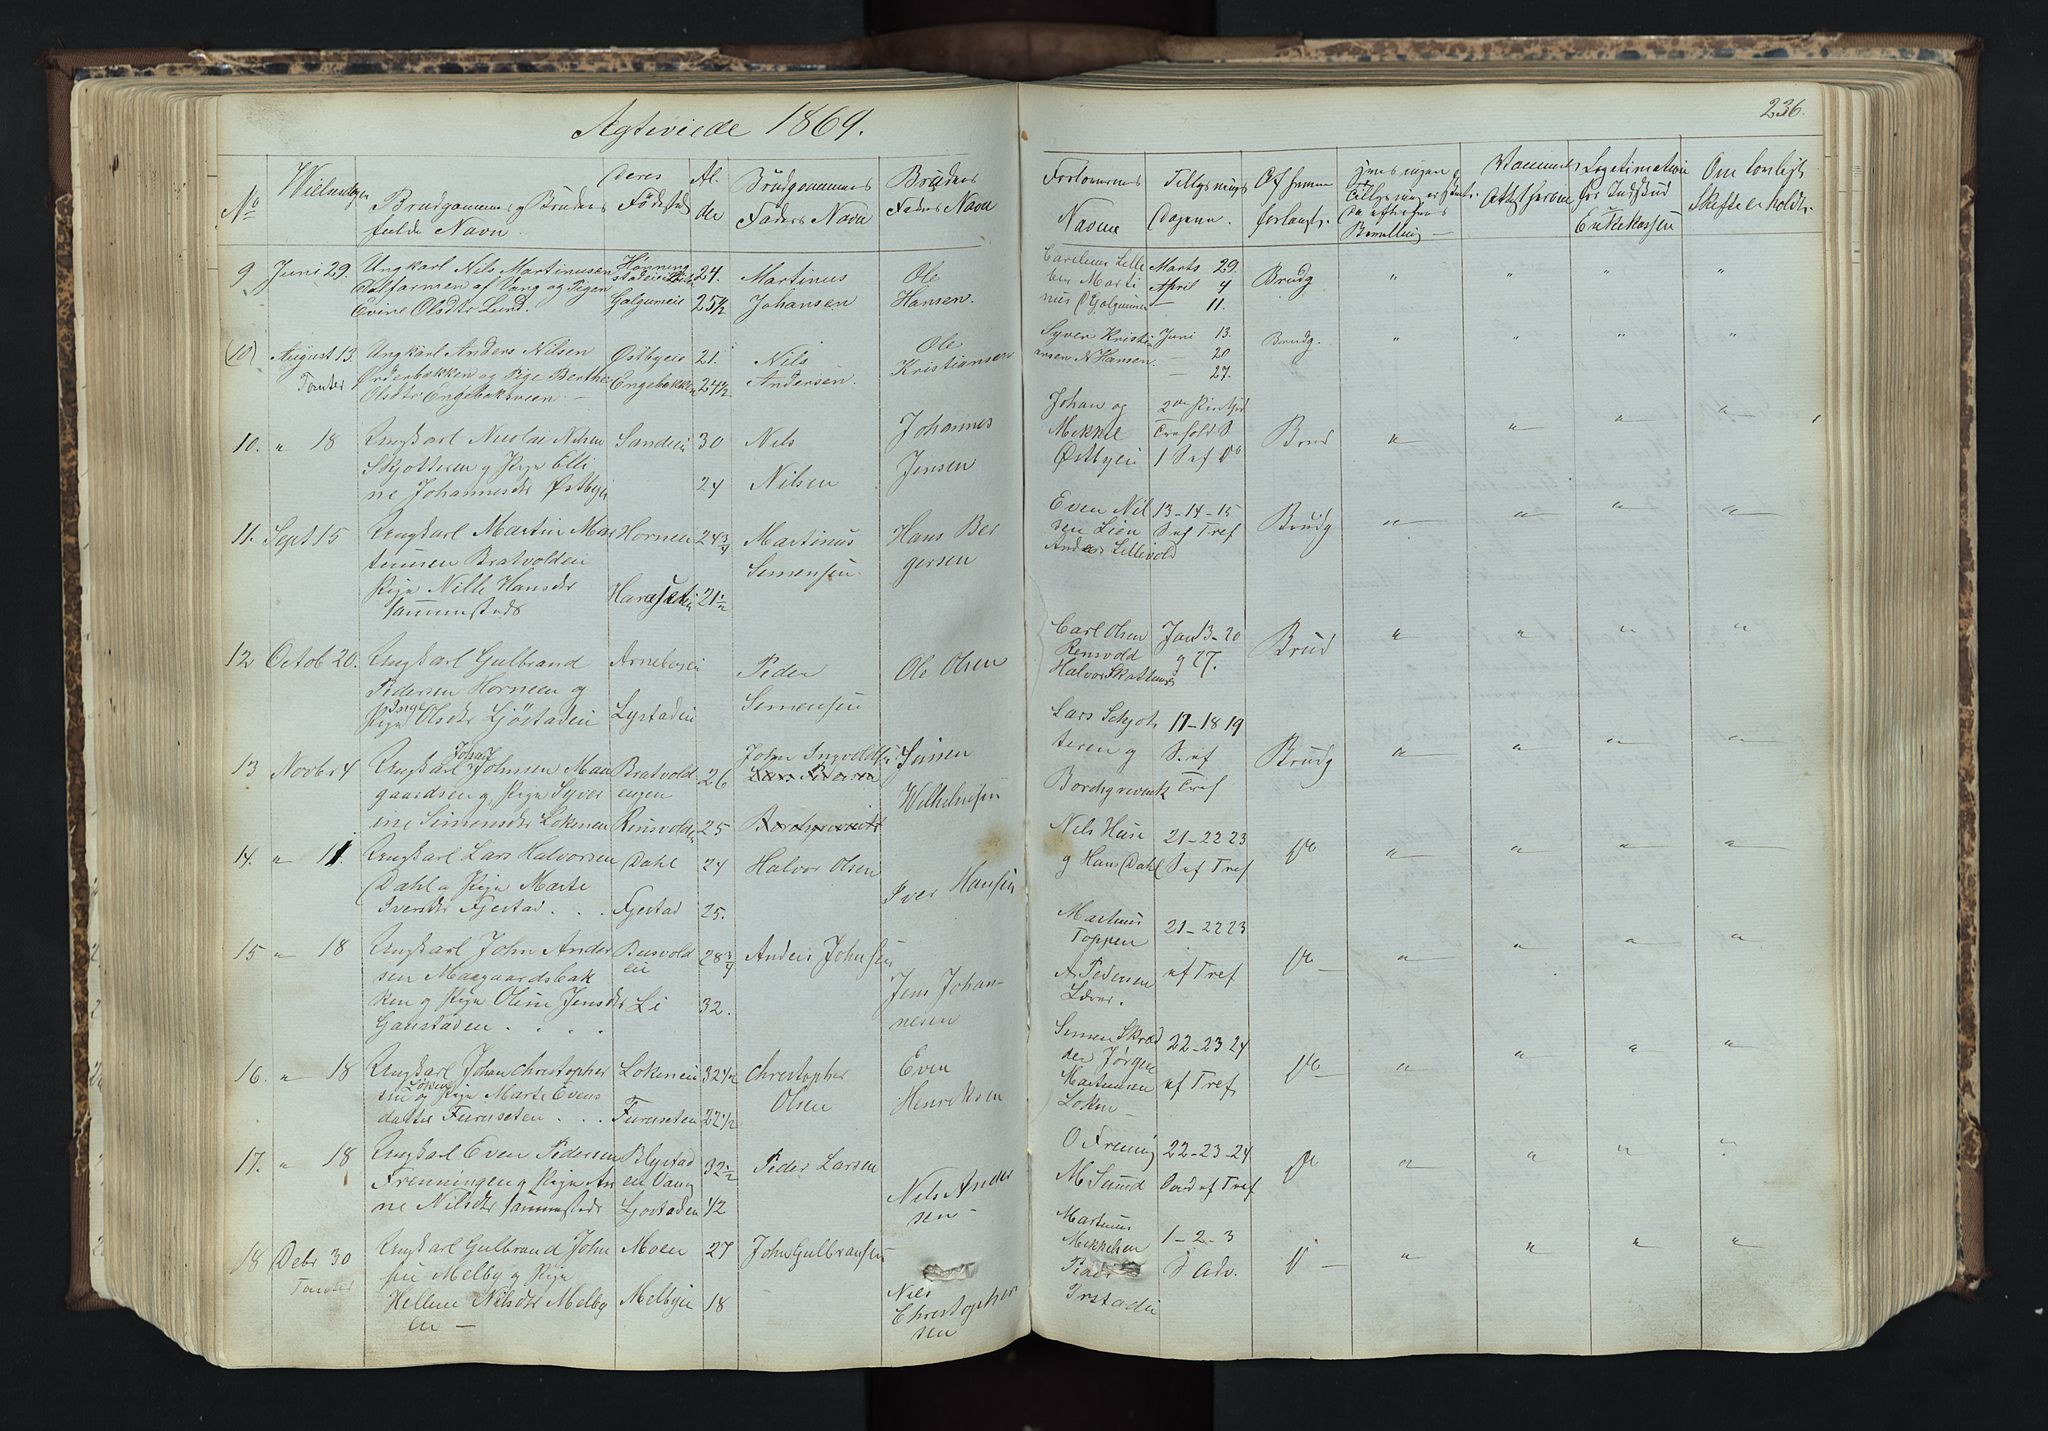 Agteviede 1869.
236.
No
Vielsesdagen
Brudgommens og Brudens
fulde Navn.
Deres
Fødested
Al-
der
Brudgommens
Faders Navn
Brudens
Faders Navn
Forlovernes
Navne
Tillysnings
Dagene.
Af hvem
forlangt.
Attest herom
Legitimation
for Indskud
Enkekassen
Om lovligt
Skifte er holdt.
9 Juni 29. Ungkarl Nils Martinusen
af Vang og Pigen
Evine Olsdtr Lund.
Galgumeie
24.
25½
Martinus
Johansen
Ole
Hansen.
Marts 29.
April 4
— 11.
Brudg
(10) August 13. Ungkarl Anders Nilsen
Tomter
Ørderbakken og Pige Berthe
Olsdtr Engebaksveen. —
Østbyeie
Engebakken
21.
24½
Nils
Andersen.
Ole
Kristiansen
Syver Kristi
ansen N Hansen.
Juni 13.
— 20
— 27.
Brudg.
10. " 18 Ungkarl Nicolai Nilsen
Skjotteren g Pige Elli
ne Johannesdtr Østbyei
Sandeie
30
24
Nils
Nilsen
Johannes
Jensen
Johan og
Mikkel
Østbyeie
Brud
11. Sept 15 Ungkarl Martin Mar
tinusen Bratvolden
Pige Nille Hansdtr
sammesteds
Hornen
24¾
21½
Martinus
Semensen
Hans Ber
gersen
Even Nil
sen Lien
Anders Lillevold
13-14-15
S ef Tref
Brudg
12 Octob 20. Ungkarl Gulbrand
Pedersen Horneen og
Pige Inge Olsdtr Ljøstadeie
Arnebergei
Lystadeie
Peder
Semensen
Ole Olsen
Carl Olsen
Rensvold
Jan 13-20
g 27.
Brud
13 Novbr 4 Ungkarl Johan Johnsen Mau
gaardsen g Pige Syver
ine Simensdtr Lokenen
Bratvold
engen
Rensvolden
26
25
John Ingvolds
Jensen
Wilhelmsen
Lars Schjot
teren og
Borchgrevenk
17-18 19
S. ef
Tref
Brudg
14. " 11. Ungkarl Lars Halvorsen
Dahl g Pige Marte
Iversdtr Fjestad . .
Dahl
Fjestad
24
25.
Halvor Olsen
Iver Hansen
Nils Huse
g Hans Dahl
21-22 23
S ef Tref
Do
15 " 18 Ungkarl John Ander
sen Maagaardsbak
ken g Pige Oline Jensdtr
Ganstaden . . . .
Busvold
en
Li
28¾
32.
Anders Johnsen
Jens Johan-
nesen
Martinus
Toppen
A Pedersen
21-22 23
ef Tref
Do
16. " 18 Ungkarl Johan Christopher
sen Loken g Pige Marte Evens
datter Furuseten . . .
Lokeneie
Furuseten
32½
22½
Christopher
Olsen
Even
Henriksen
Simen Skræd
der Jørgen
Martinsen
Loken —
22-23 24
ef Tref
Do
17. " 18 Ungkarl Even Pedersen
Frenningen g Pige An
ne Nilsdtr sammesteds
Blystad
ei Vang
Ljostaden
32½
42
Peder Larsen
Nils Ander
sen —
O Frening
M Suund
22-23-24
Do
18 Debr 30 Ungkarl Gulbrand John
Tomter
sen Melby g Pige
Hellene Nilsdtr Melby
en —
Moen
Melbyeie
27
18
John Gulbransen
Nils
Christopher
sen
Martinus
Mikkelsen
Peder
Irstadeie
1-2-3
S Adv.